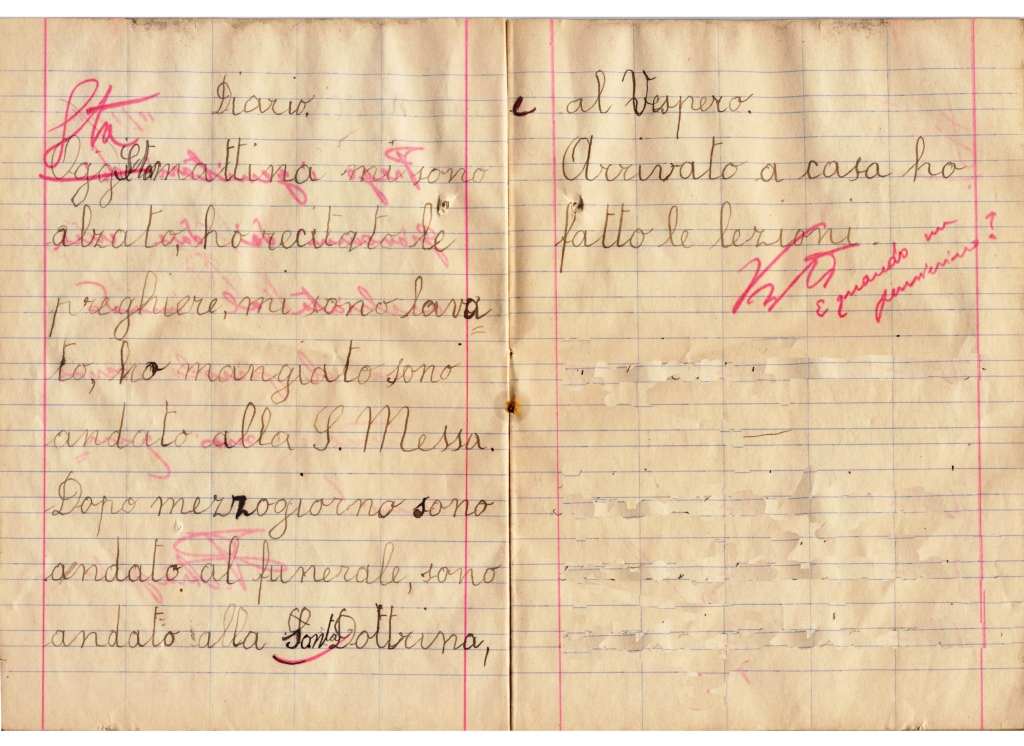 Diario.
Sta
Oggi Sta mattina mi sono
alzato, ho recitato le
preghiere, mi sono lava
to, ho mangiato sono
andato alla S. Messa.
Dopo mezzogiorno sono
andato al funerale, sono
andato alla Santa Dottrina,
e al Vespero.
Arrivato a casa ho
fatto le lezioni.
E quando un
pensierino?